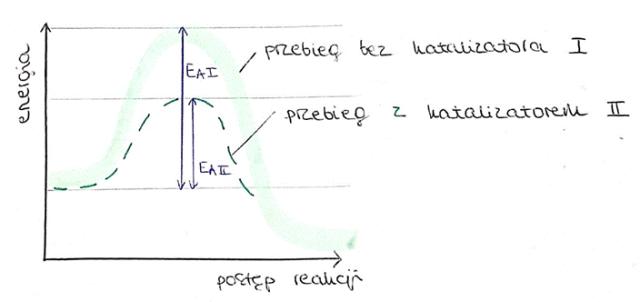 energia
przebieg bez katalizatora I
EAI
przebieg z katalizatorem II
EAII
postęp reakcji